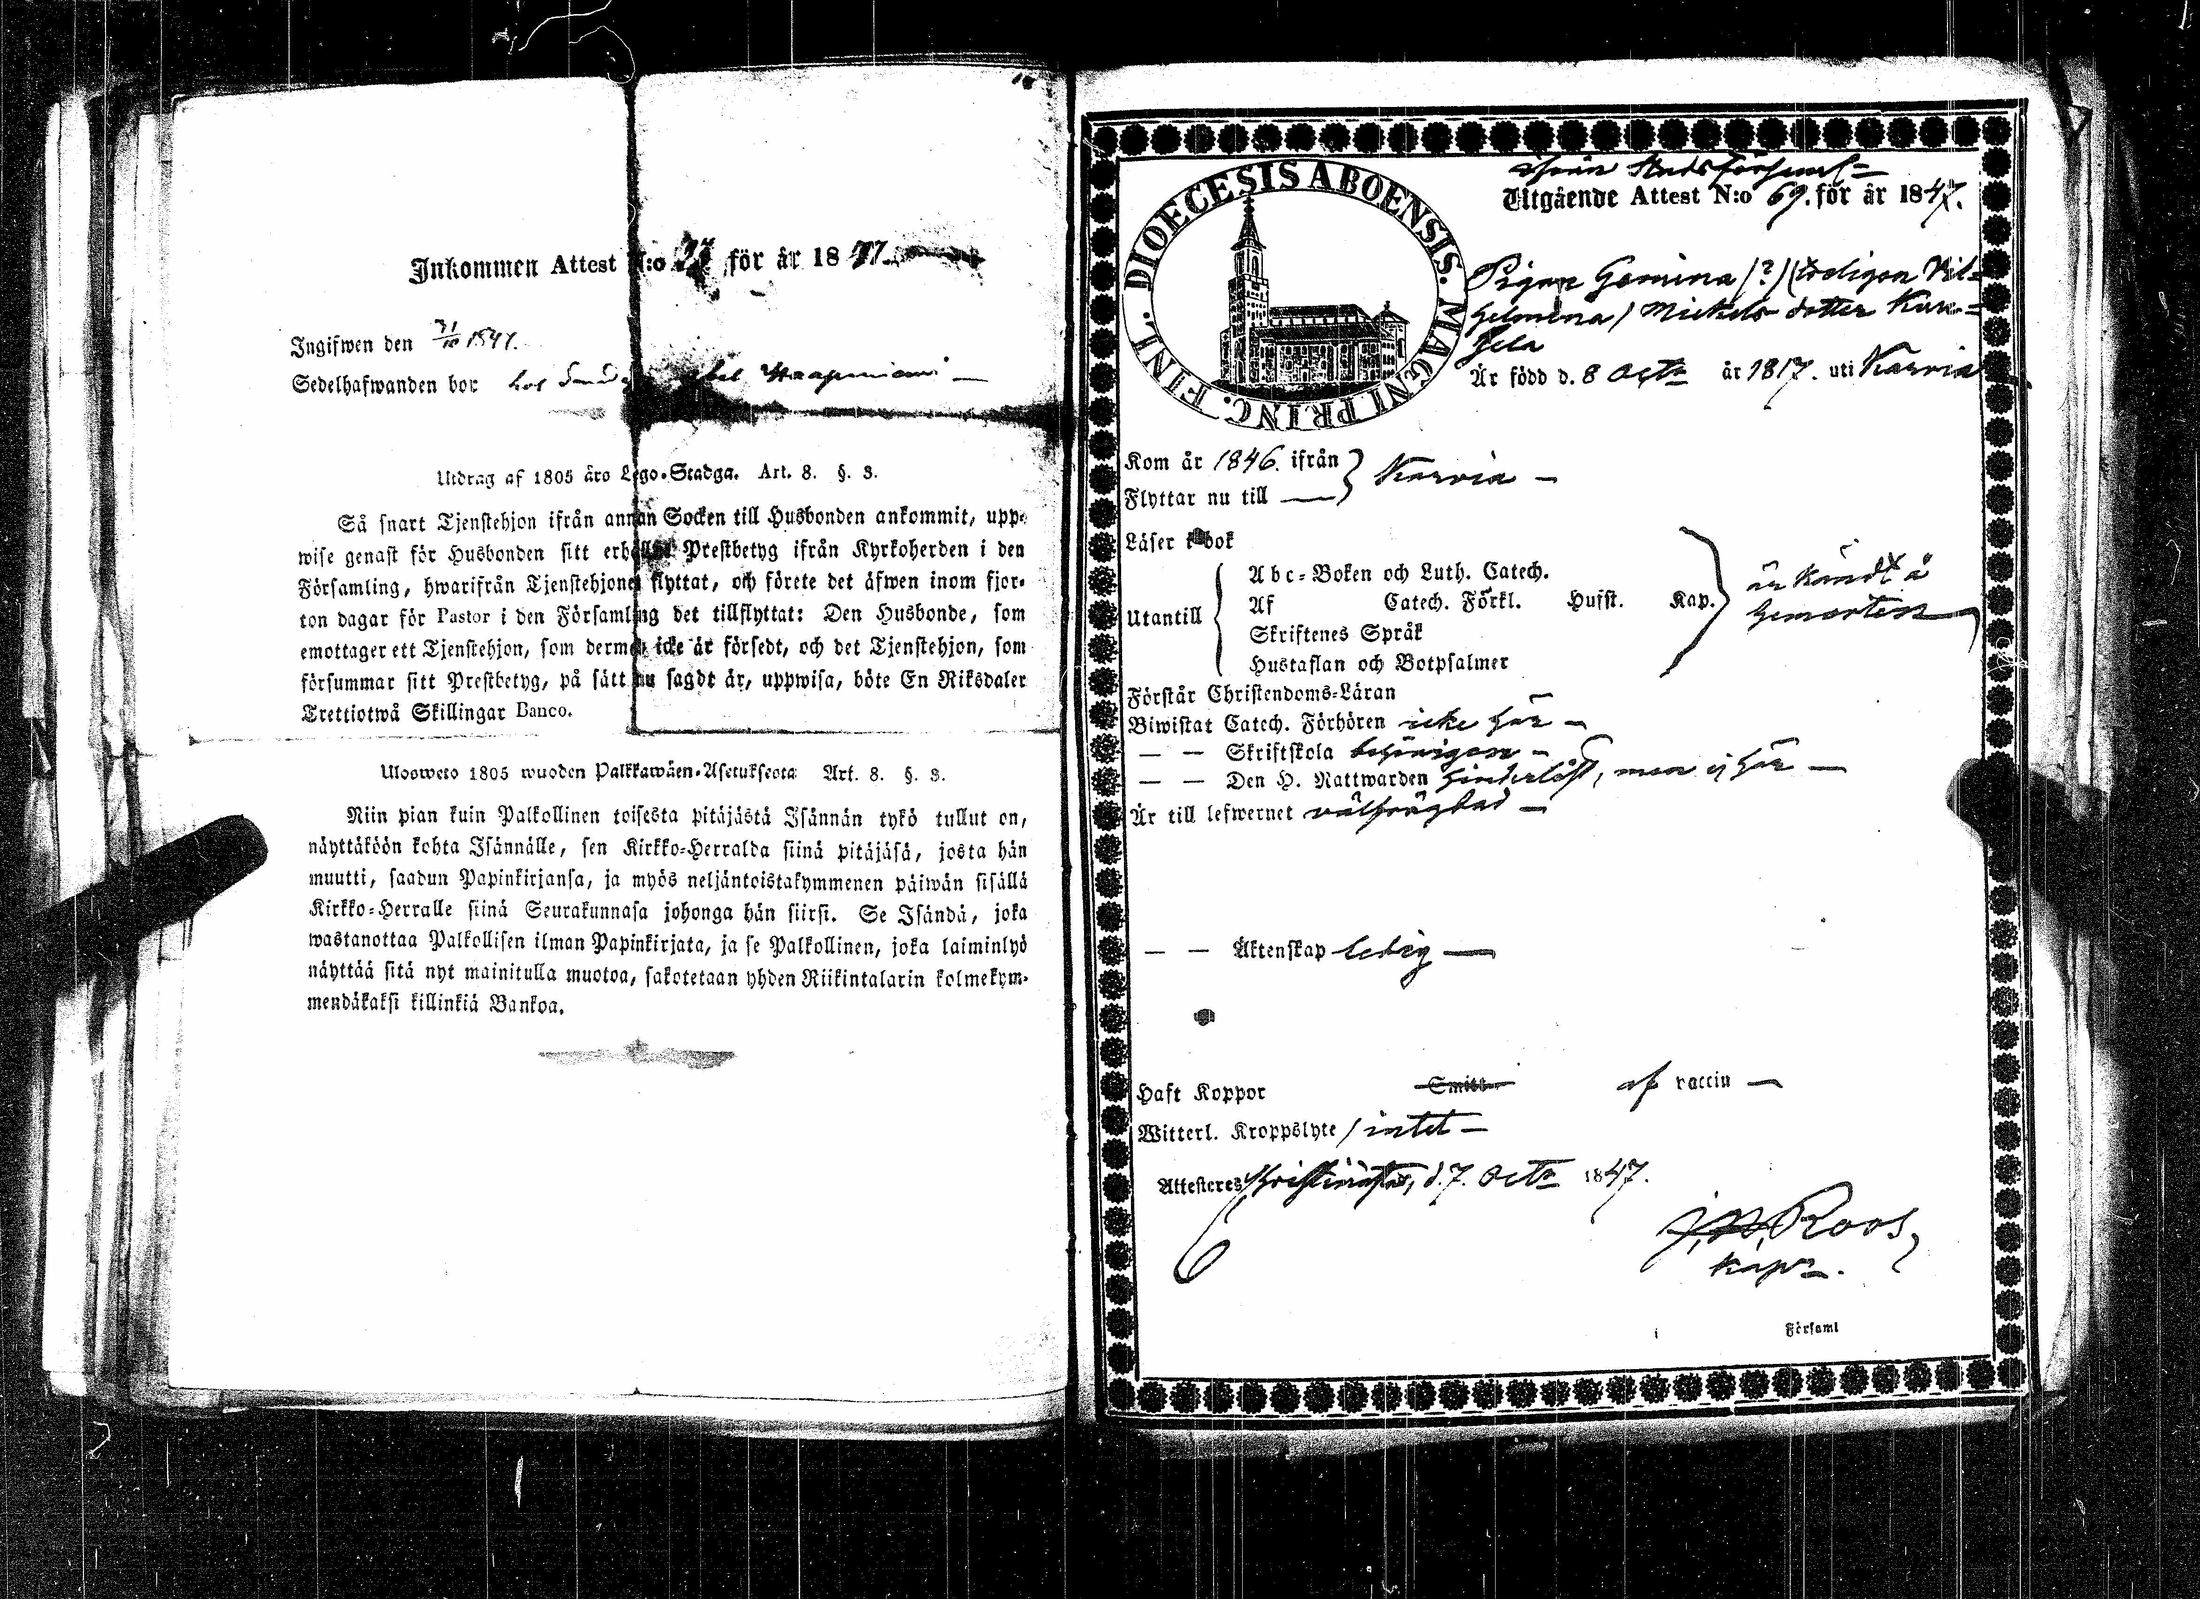 Inkommen Attest N:o för år 1847.
Ingifwen den 21/10 1847.
Sedelhafwanden bor hos
Utdrag af 1805 års Lego-Stadga. Art. 8. §. 3.
Så snart Tjenstehjon ifrån annan Socken till Husbonden ankommit, upp-
wise genast för Husbonden sitt erhållne Prestbetyg ifrån Kyrkoherden i den
Församling, hwarifrån Tjenstehjonet flyttat, och förete det äfwen inom fjor-
ton dagar för Pastor i den Församling det tillflyttat: Den Husbonde, som
emottager ett Tjenstehjon, som dermed icke är försedt, och det Tjenstehjon, som
försummar sitt Prestbetyg, på sätt nu sagdt är, uppwisa, böte En Riksdaler
Trettiotwå Skillingar Banco.
Ulosweto 1805 wuoden Palkkawäen-Asetuksesta Art. 8. §. 3.
Niin pian kuin Palkollinen toisesta pitäjästä Isännän tykö tullut on,
näyttäköön kohta Isännälle, sen Kirkko-Herralda siinä pitäjäsä, josta hän
muutti, saadun Papinkirjansa, ja myös neljäntoistakymmenen päiwän sisällä
Kirkko-Herralle siinä Seurakunnasa johonga hän siirsi. Se Isändä, joka
wastanottaa Palkollisen ilman Papinkirjata, ja se Palkollinen, joka laiminlyö
näyttää sitä nyt mainitulla muotoa, sakotetaan yhden Riikintalarin kolmekym-
mendäkaksi killinkiä Bankoa.
DIOECESIS ABOENSIS. MAGNI PRINC. FINL.
ifrån Stadsförsaml-
Utgående Attest N:o 69. för år 1847.
Pigan Gemina (?) (troligen Vil-
helmina) Mickelsdotter Kan-
Är född d. 8 Octr år 1817. uti Karvia
Kom år 1846. ifrån } Karvia -
Flyttar nu till —
Läser i bok
Utantill
Abc-Boken och Luth. Catech.
Af Catech. Förkl. Husst. Kap.
Skriftenes Språk
Hustaflan och Botpsalmer
är kändt å
hemorten
Förstår Christendoms-Läran
Biwistat Catech. Förhören icke här -
— — Skriftskola behörigen -
— — Den H. Nattwarden hinderlöst, men ej här —
Är till lefwernet välfrägdad -
— — Äktenskap ledig —
Haft Koppor Smitt. af vaccin —
Witterl. Kroppslyte / intet -
Attesteres Kristinestad, d. 7. Octr 1847.
J. W. Roos,
Kapn.
Församl